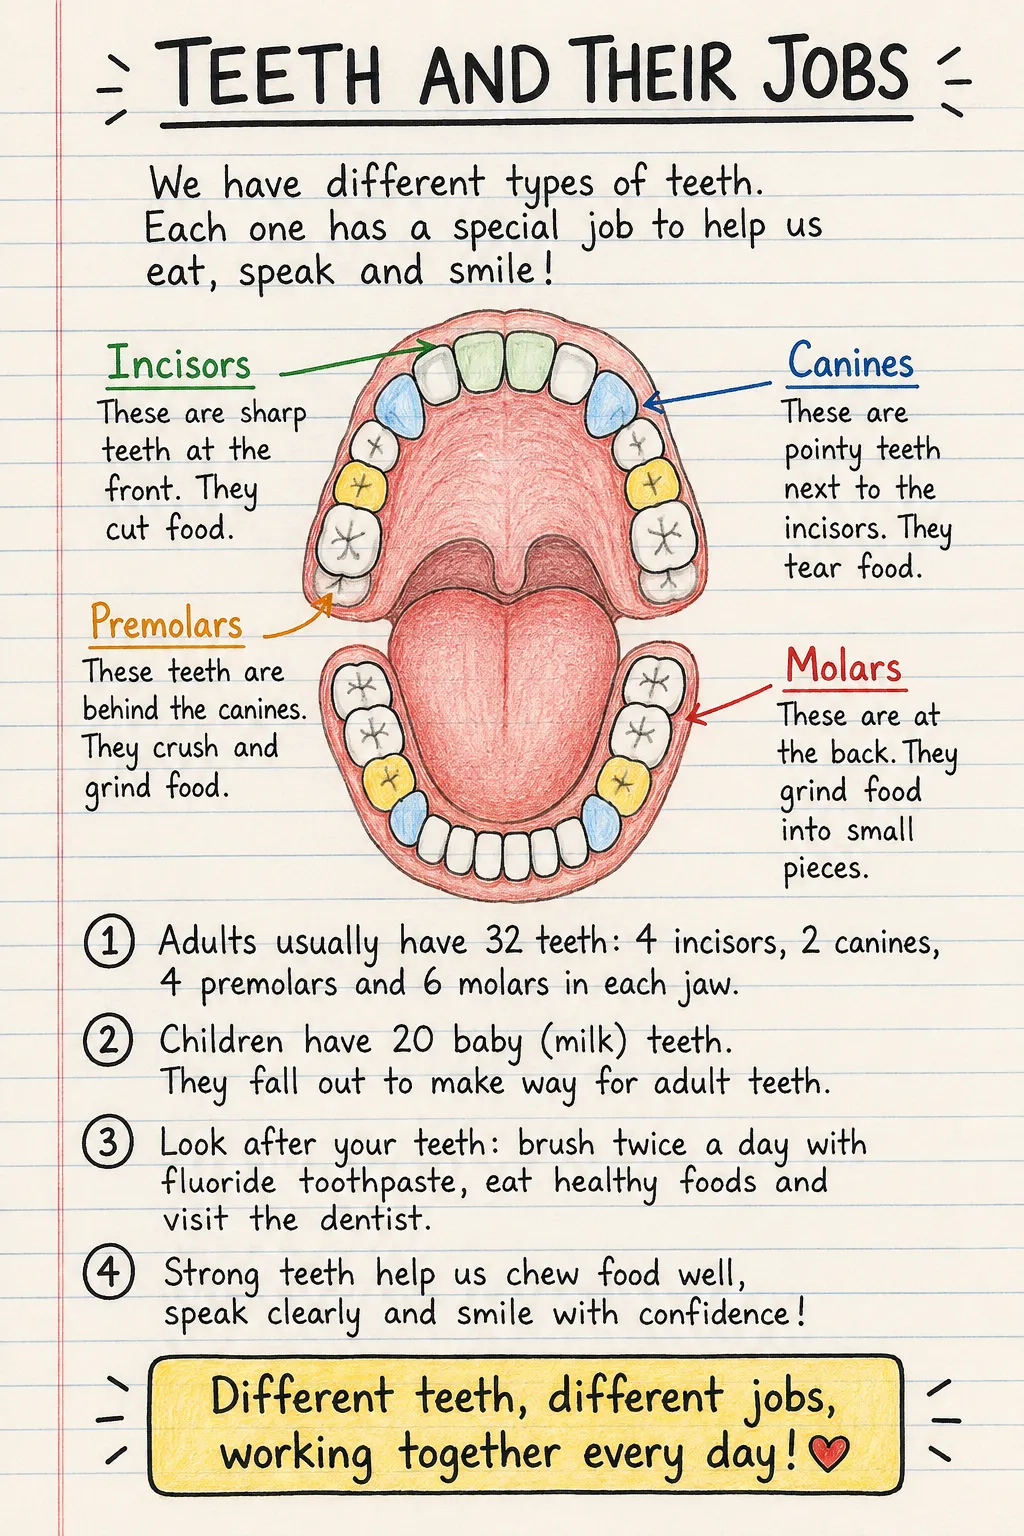 TEETH AND THEIR JOBS
We have different types of teeth.
Each one has a special job to help us
eat, speak and smile!
Incisors
These are sharp
teeth at the
front. They
cut food.
Canines
These are
pointy teeth
next to the
incisors. They
tear food.
Premolars
These teeth are
behind the canines.
They crush and
grind food.
Molars
These are at
the back. They
grind food
into small
pieces.
1 Adults usually have 32 teeth: 4 incisors, 2 canines,
4 premolars and 6 molars in each jaw.
2 Children have 20 baby (milk) teeth.
They fall out to make way for adult teeth.
3 Look after your teeth: brush twice a day with
fluoride toothpaste, eat healthy foods and
visit the dentist.
4 Strong teeth help us chew food well,
speak clearly and smile with confidence!
Different teeth, different jobs,
working together every day!